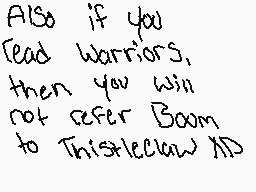 Also if you
read Warriors,
then you will
not refer Boom
to Thistleclaw XD